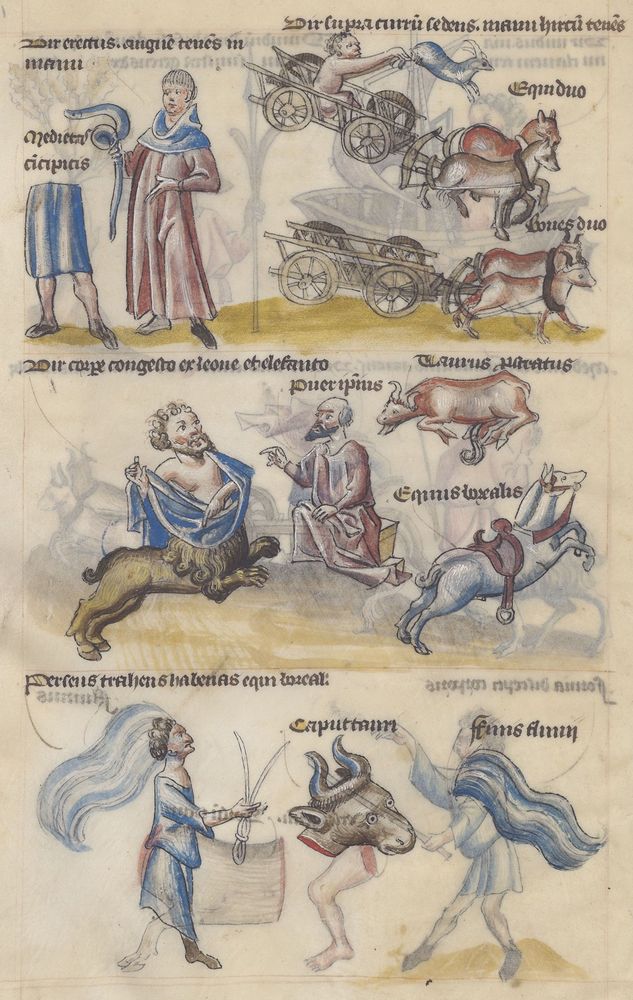 Vir erectus. anguē tenēs in
manu
Vir supra currū sedens. manu hircū tenēs
Equi duo
Medietas
cīcipitis
Boues duo
Vir corpe congesto ex leone et elefanto
Puer ipīus
Taurus pstratus
Equus borealis
Perseus trahens habenas equi boreal.
Caput tauri
ffinis fluuii